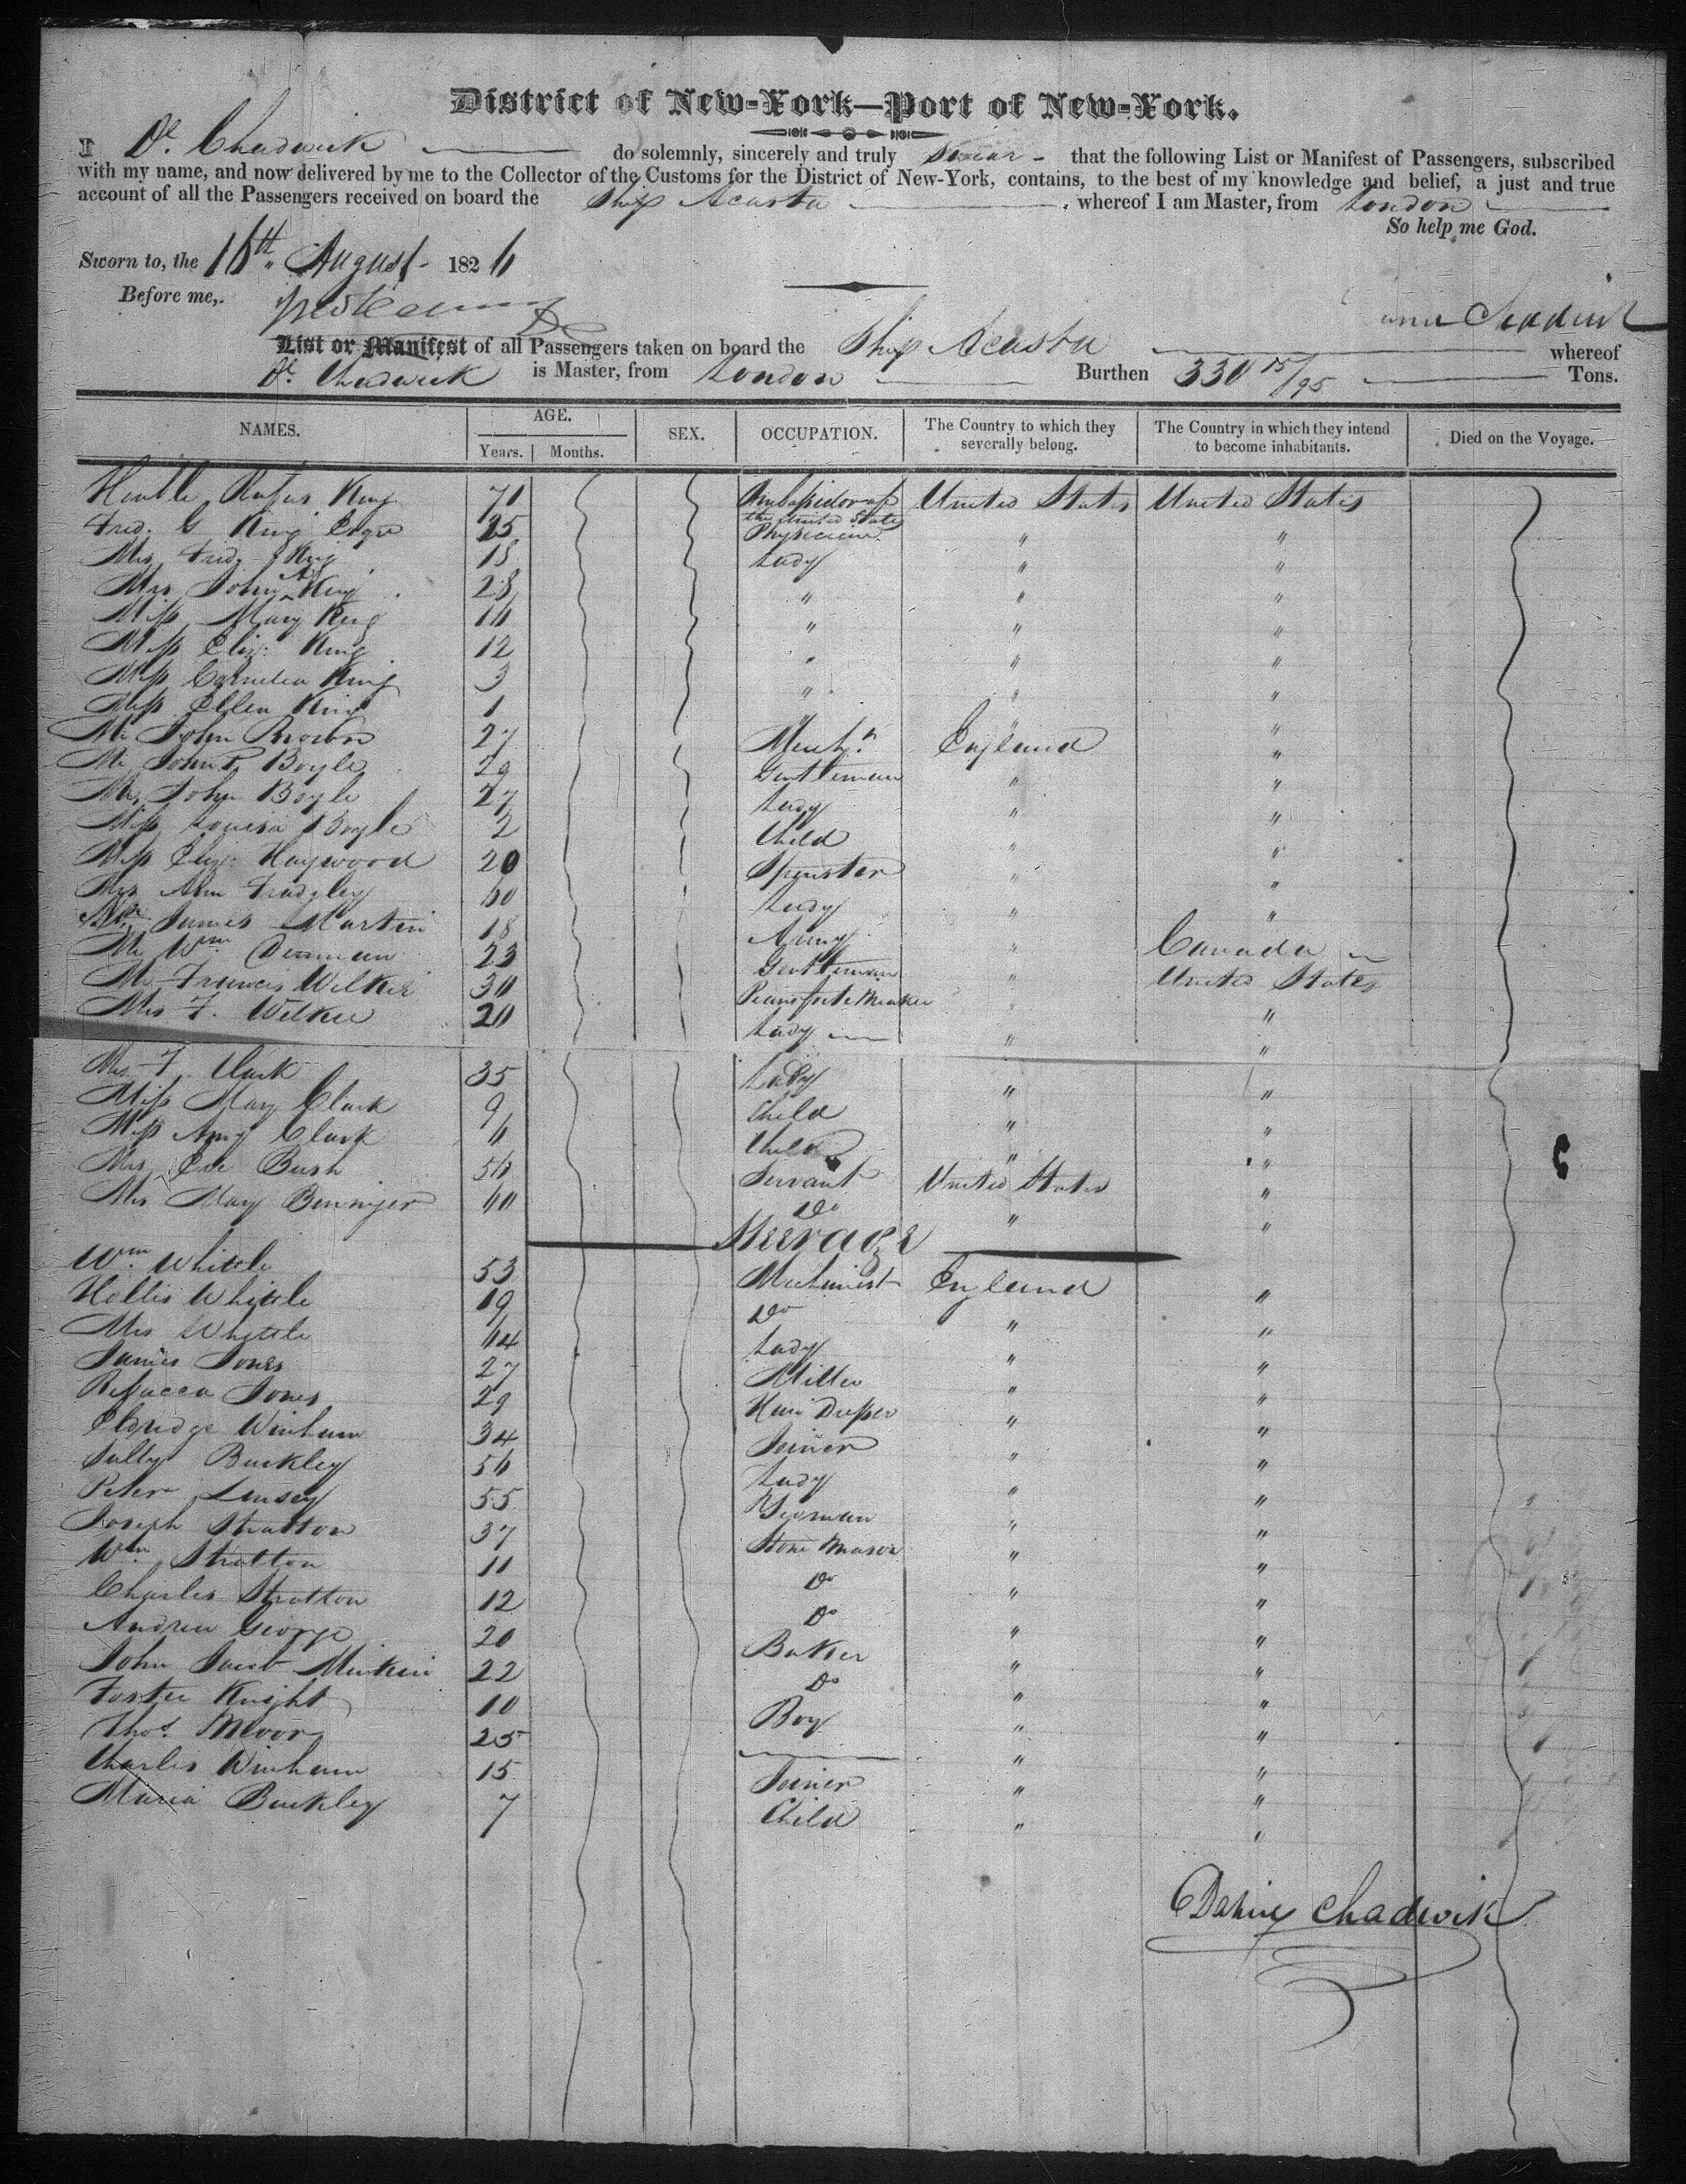 District of New-York—Port of New-York.
I Dl. Chadwick do solemnly, sincerely and truly swear - that the following List or Manifest of Passengers, subscribed
with my name, and now delivered by me to the Collector of the Customs for the District of New-York, contains, to the best of my knowledge and belief, a just and true
account of all the Passengers received on board the Ship Acasta , whereof I am Master, from London
So help me God.
Sworn to, the 16th August - 1826
Before me,
List or Manifest of all Passengers taken on board the Ship Acasta whereof
Dl. Chadwick is Master, from London Burthen 330 15/95 Tons.
NAMES. AGE. Years. Months. SEX. OCCUPATION. The Country to which they severally belong. The Country in which they intend to become inhabitants. Died on the Voyage.
Honble Rufus King 71 Ambassador of the United States United States United States
Fred. G King Esqre 25 Physician " "
Mrs Fred. King 18 Lady " "
Mrs John A King 28 " " "
Miss Mary King 16 " " "
Miss Eliz: King 12 " " "
Miss Cornelia King 3 " " "
Miss Ellen King 1 " "
Mr John Brown 27 Mercht. England "
Mr John P. Boyle 29 Gentleman " "
Mrs John Boyle 27 Lady " "
Miss Louisa Boyle 2 Child " "
Miss Eliz: Haywood 20 Spinster " "
Mrs Ann Fradgley 60 Lady " "
Mr James Martin 18 Army " Canada
Mr Wm Denman 23 Gentleman " United States
Mr Francis Wilkie 30 Pianoforte Maker " "
Mrs F. Wilkie 20 Lady " "
Mrs F. Clark 35 Lady " "
Miss Mary Clark 9 Child " "
Miss Amy Clark 6 Child " "
Mrs Eve Bush 56 Servant United States "
Mrs Mary Benninger 40 Do " "
Steerage
Wm. Whittle 53 Machinest England "
Hollis Whittle 19 Do " "
Mrs Whittle 64 Lady " "
James Jones 27 Miller " "
Rebacca Jones 29 Hair Dresser " "
Eldridge Winham 34 Joiner " "
Sally Buckley 56 Lady " "
Peter Lensey 55 Yeoman " "
Joseph Stratton 37 Stone Mason " "
Wm Stratton 11 Do " "
Charles Stratton 12 Do " "
Andrew George 20 Baker " "
John Jacob 22 Do " "
Foster Knight 10 Boy " "
Thos. Moor 25 " "
Charles Winham 15 Joiner " "
Maria Buckley 7 Child " "
Chadwick